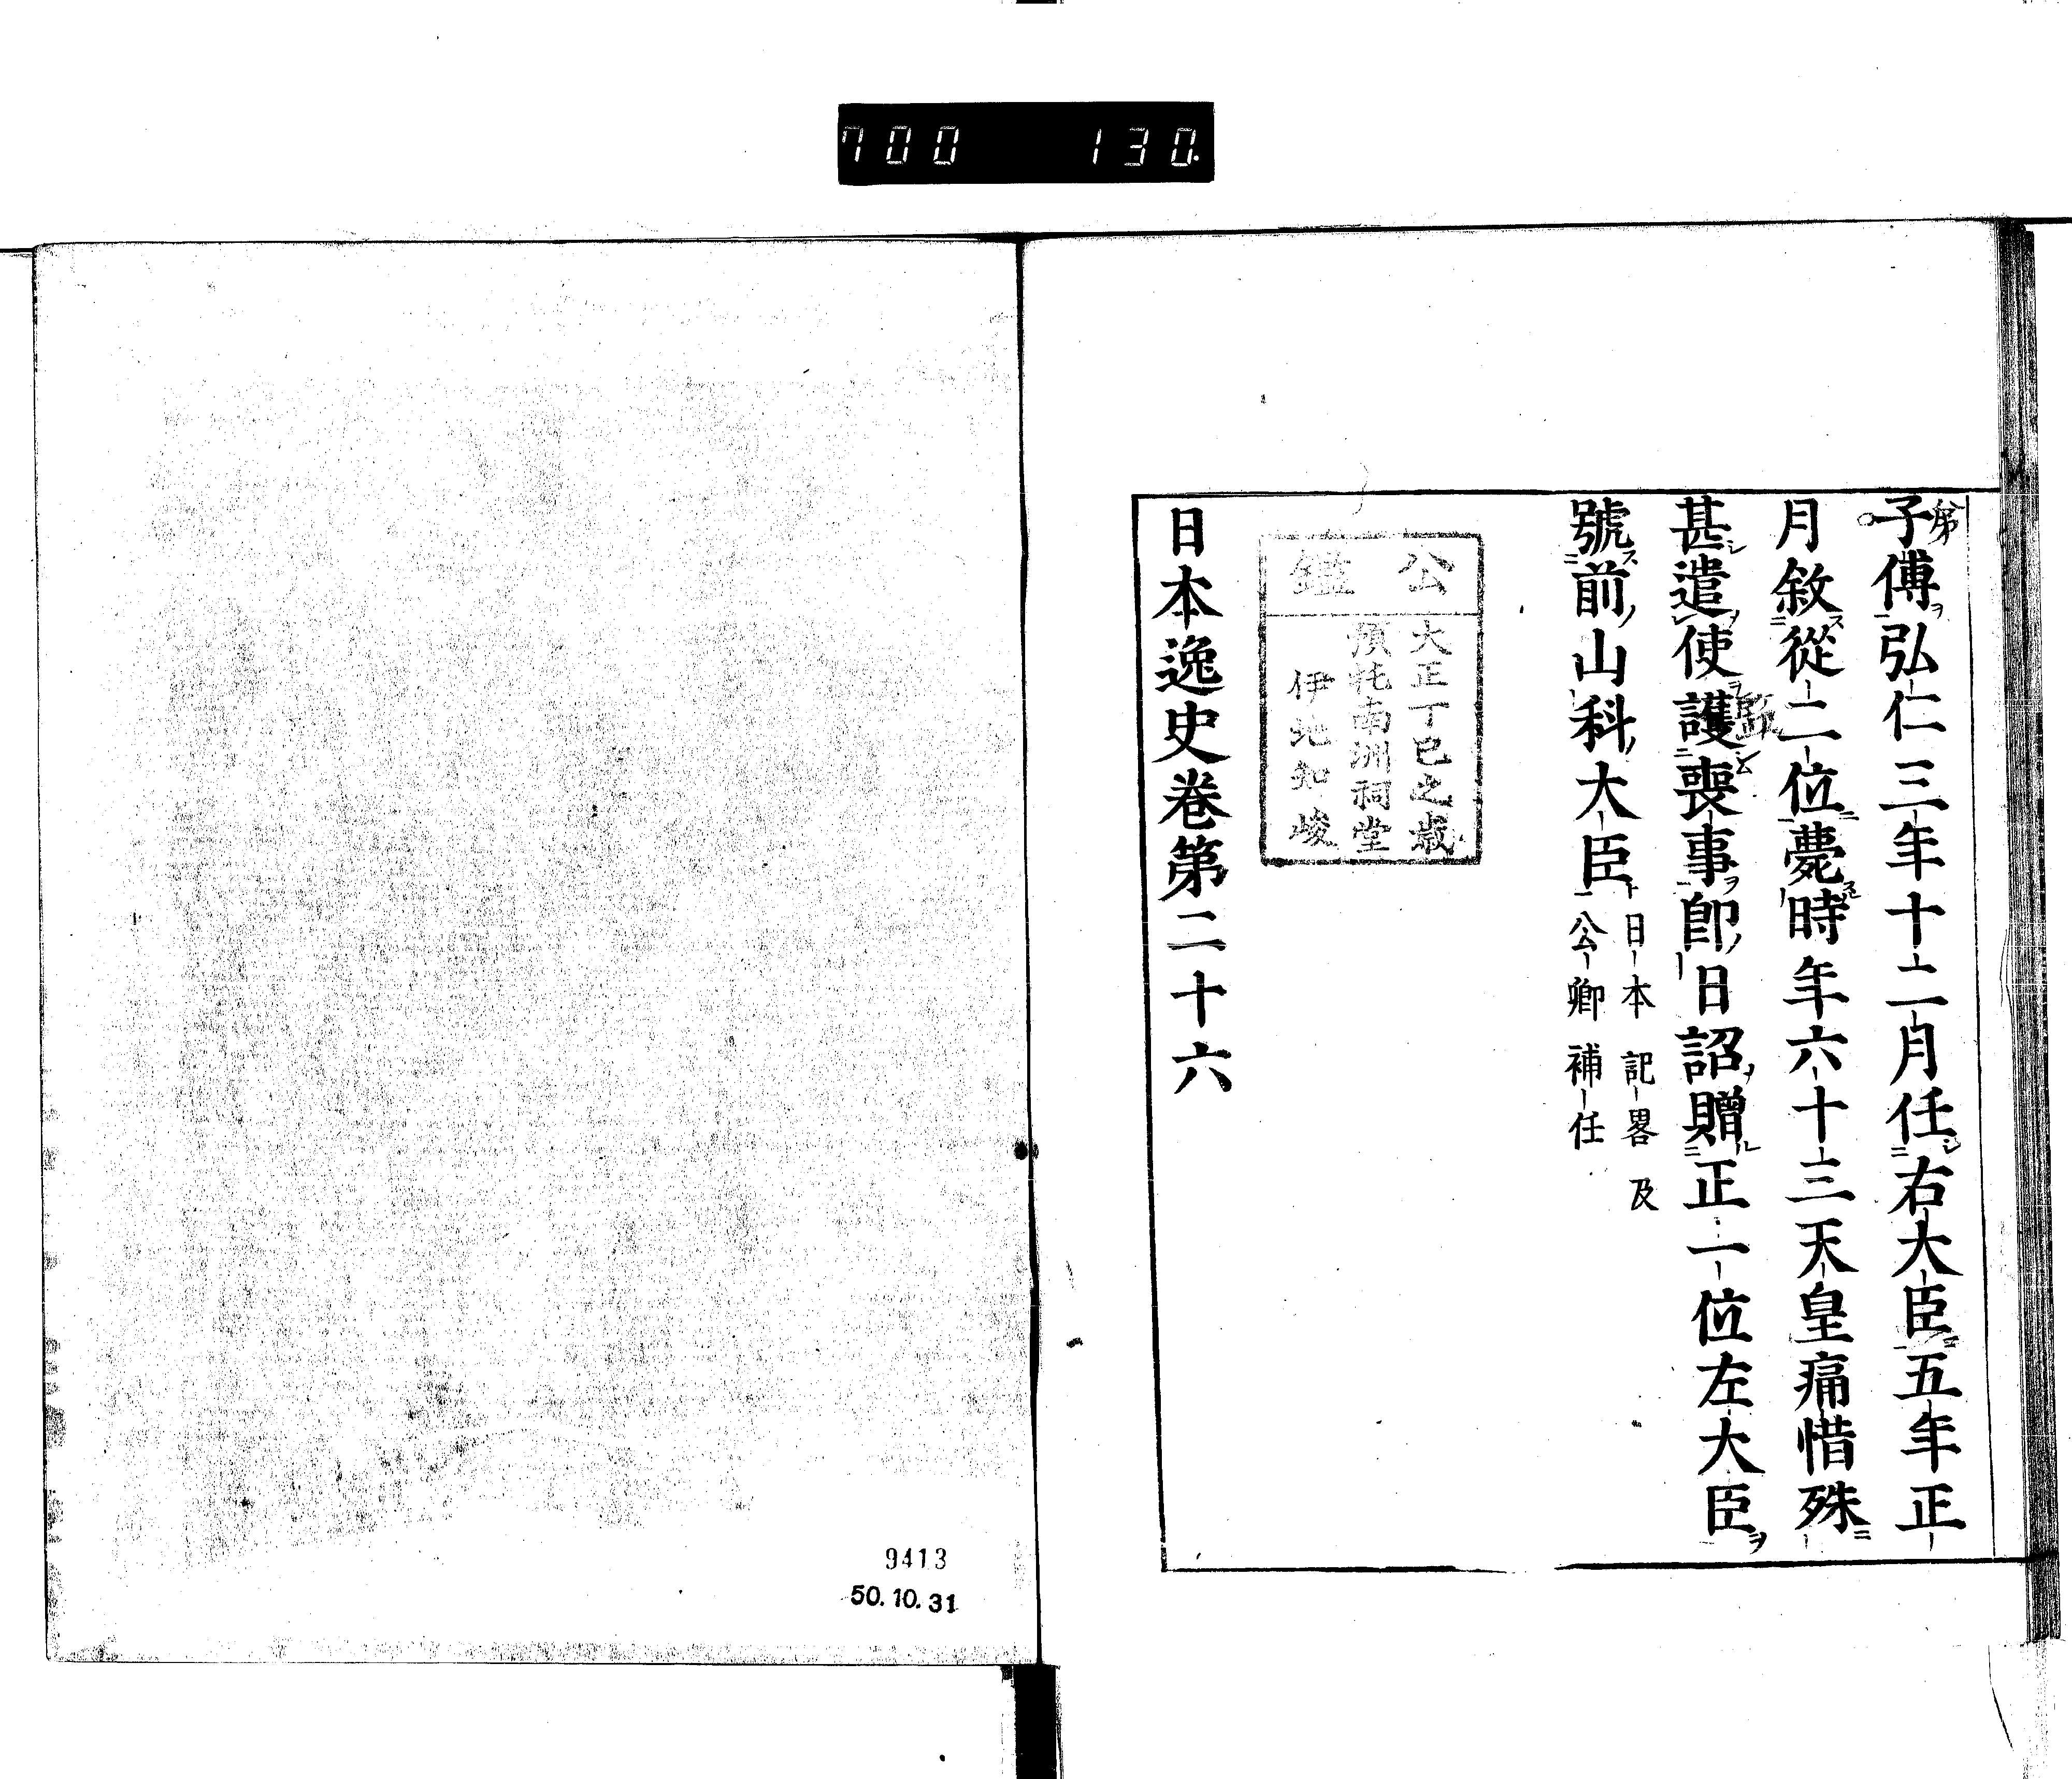 700 130.
子傅弘仁三年十二月任右大臣五年正
月敘從二位薨時年六十三天皇痛惜殊
甚遣使護喪事卽日詔贈正一位左大臣
號前山科大臣
日本記畧及
公卿補任
公鑑
大正丁巳之歲
預托南洲祠堂
伊地知峻
日本逸史卷第二十六
9413
50.10.31